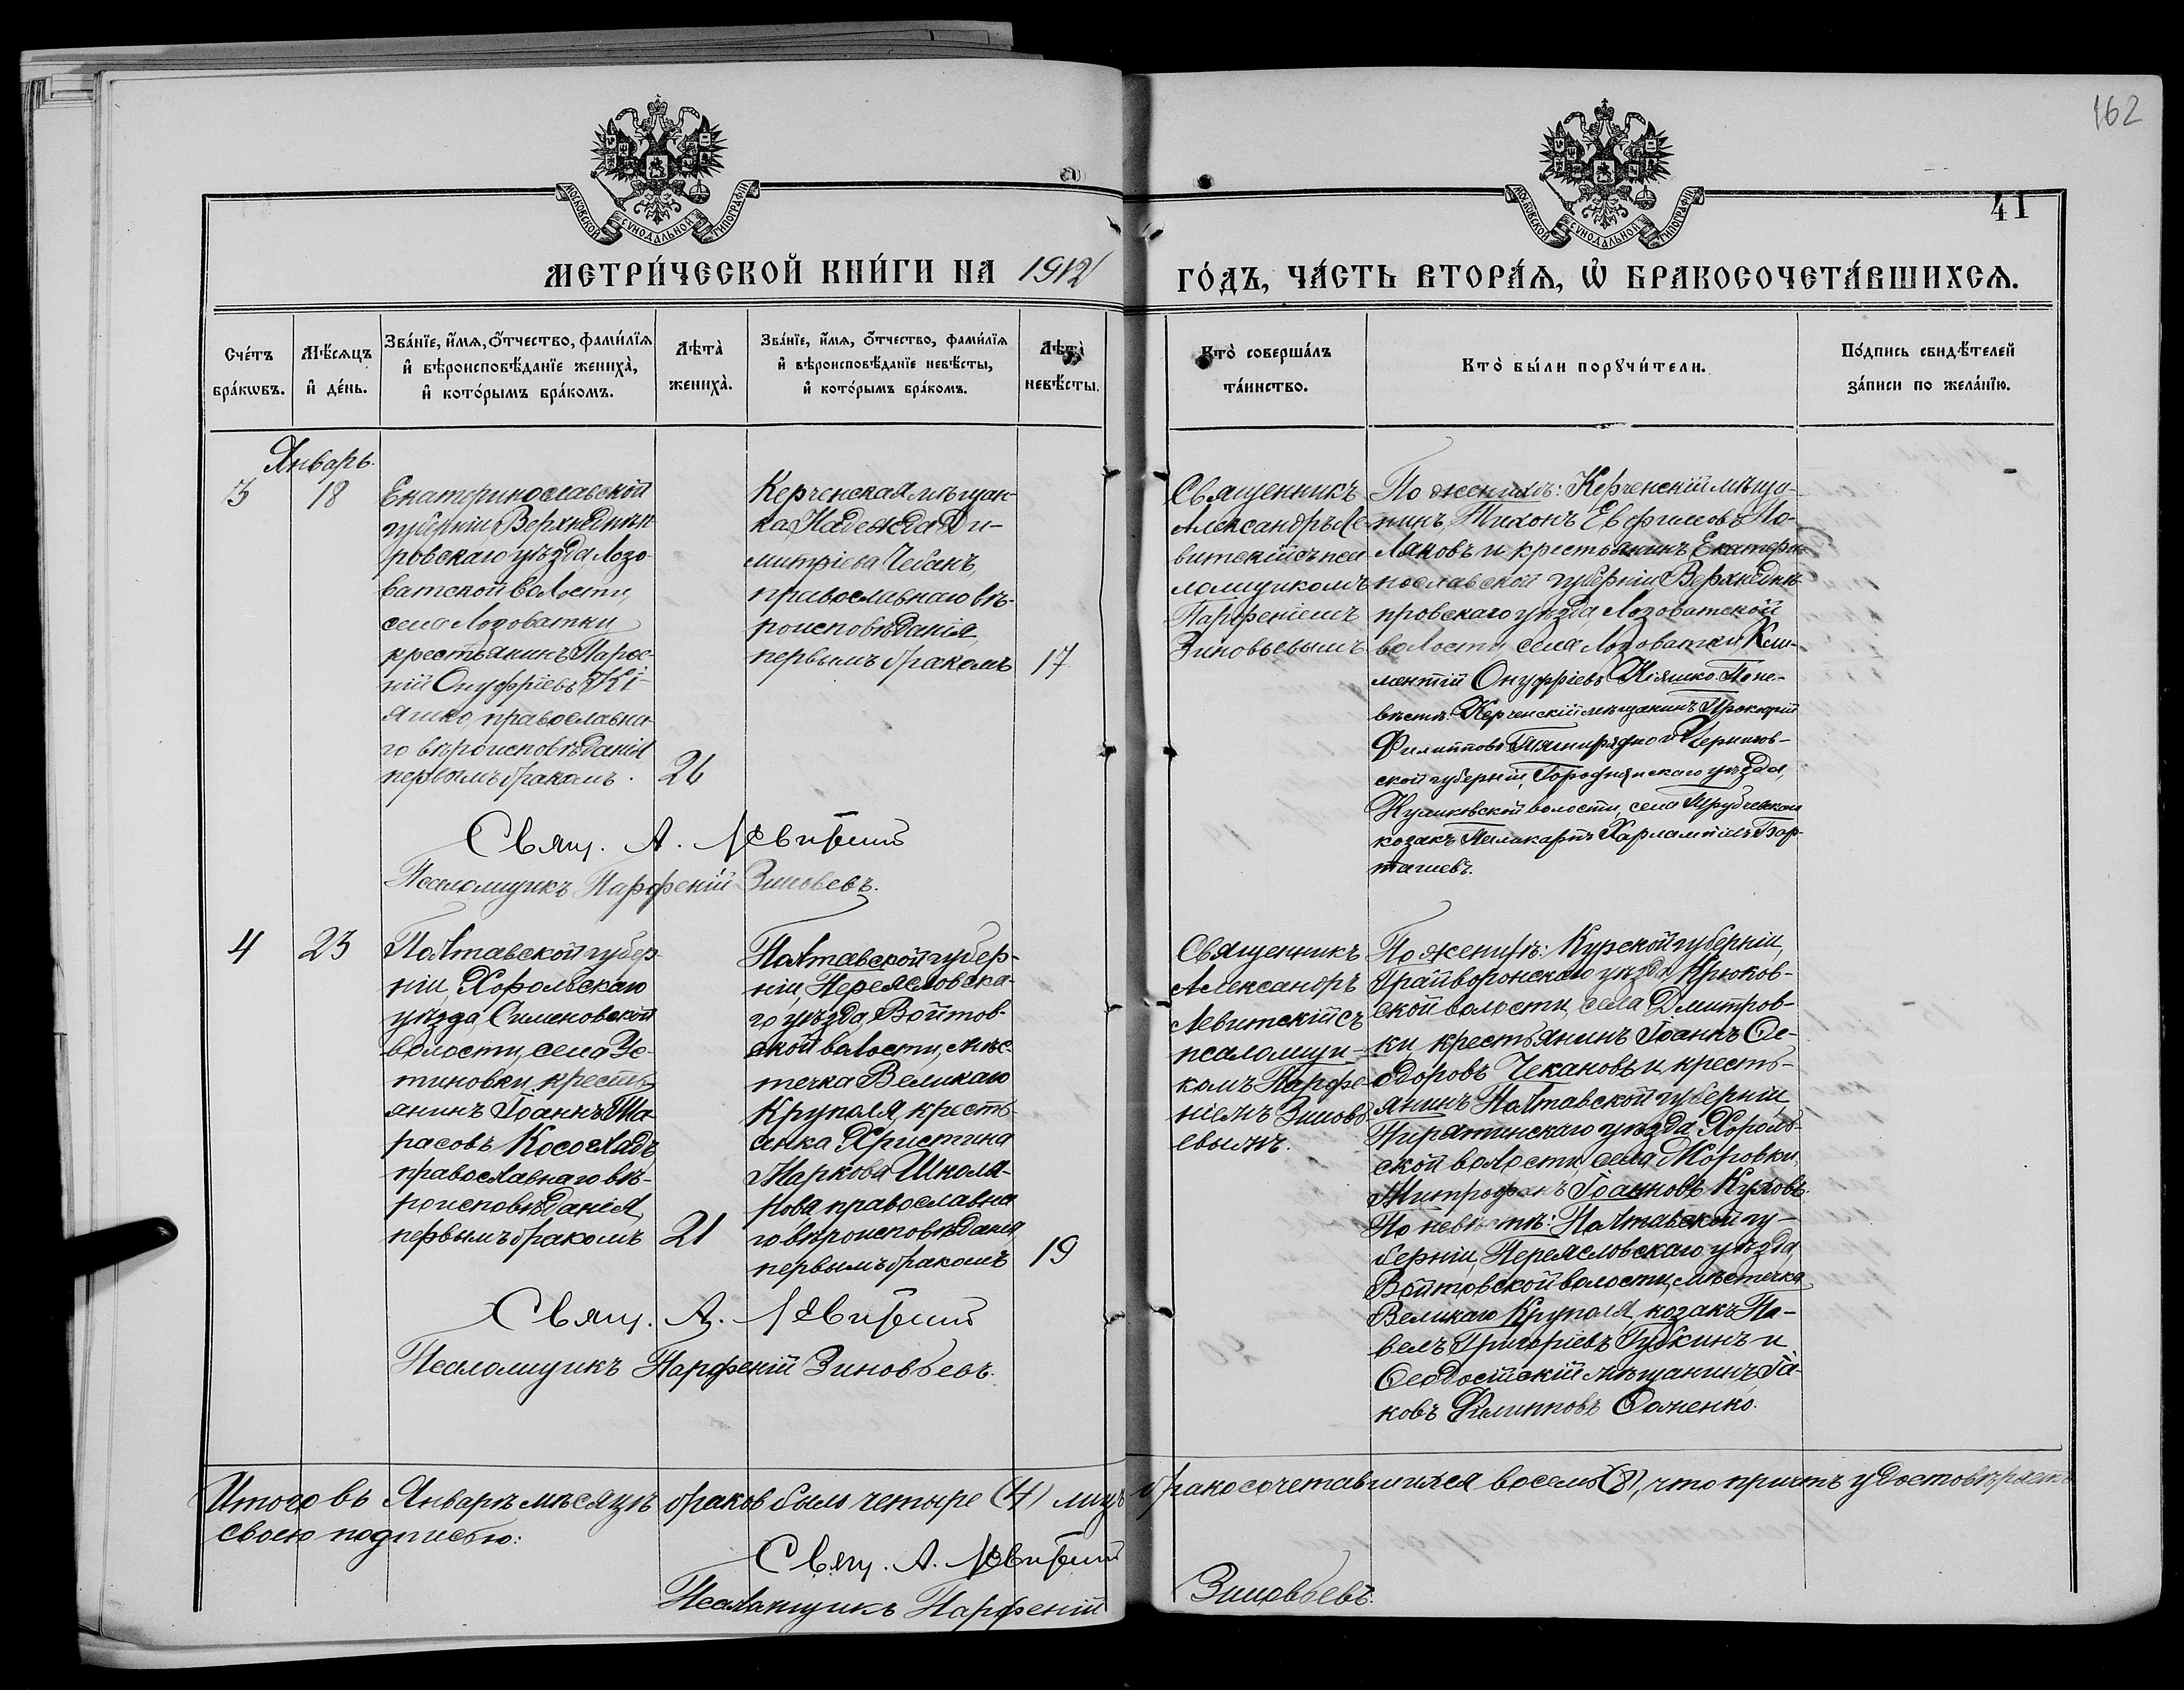 162
41
МОСКОВСКОЙ СѴНОДАЛЬНОЙ ТИПОГРАФІИ
МОСКОВСКОЙ СѴНОДАЛЬНОЙ ТИПОГРАФІИ
МЕТРИ́ЧЕСКОЙ КНИ́ГИ НА 1912
ГО́ДЪ, ЧА́СТЬ ВТОРА́Ѧ, Ѽ БРАКОСОЧЕТА́ВШИХСѦ.
Сче́тъ бра́кѡвъ.
Мѣ́сѧцъ и҆ де́нь.
Зва́нїе, и҆́мѧ, ѻ҆́тчество, фами́лїѧ и҆ вѣроисповѣ́данїе жениха̀, и҆ кото́рымъ бра́комъ.
Лѣта̀ жениха̀.
Зва́нїе, и҆́мѧ, ѻ҆́тчество, фами́лїѧ и҆ вѣроисповѣ́данїе невѣ́сты, и҆ кото́рымъ бра́комъ.
Лѣта̀ невѣ́сты.
Кто̀ соверша́лъ та́инство.
Кто̀ бы́ли порꙋчи́тели.
По́дпись свидѣ́телей за́писи по жела́нїю.
Январь.
3
18
Екатеринославской
губерніи, Верхнеднѣп-
ровскаго уѣзда Лозо-
ватской волости,
села Лозоватки
крестьянинъ Парѳе-
ній Онуфріевъ Кі-
яшко, православна-
го вѣроисповѣданія
первымъ бракомъ.
26
Керченская мѣщан-
ка Надежда Ди-
митріева Чебанъ,
православнаго вѣ-
роисповѣданія,
первымъ бракомъ
17
Священникъ
Александръ Ле-
витскій съ пса-
ломщикомъ
Парѳеніемъ
Зиновьевымъ
По женихѣ: Керченскій мѣща-
нинъ, Тихонъ Евфимовъ По-
ляковъ и крестьянинъ Екатери-
нославской губерніи, Верхнеднѣ-
провскаго уѣзда, Лозоватской
волости, села Лозоватки, Кли-
ментій Онуфріевъ Кіяшко. По не-
вѣстѣ: Керченскій мѣщанинъ Прокофій
Филипповъ и Чернигов-
ской губерніи, Городнянскаго уѣзда,
Куликовской волости, села
козакъ Поликарпъ Харлампіевъ Бар-
ташевъ.
Свящ. А. Левитскій
Псаломщикъ Парфеній Зиновьевъ.
4
23
Полтавской губер-
ніи, Хорольскаго
уѣзда, Семеновской
волости, села Ус-
тиновки, кресть-
янинъ Іоаннъ Та-
расовъ Косолапъ
православнаго вѣ-
роисповѣданія,
первымъ бракомъ
21
Полтавской губер-
ніи, Переяславска-
го уѣзда, Войтов-
ской волости, мѣс-
течка Великаго
Круполя, кресть-
янка Христина
Маркова Школя-
рова православна-
го вѣроисповѣданія,
первымъ бракомъ
19
Священникъ
Александръ
Левитскій съ
псаломщи-
комъ Парфе-
ніемъ Зиновь-
евымъ.
По женихѣ: Курской губерніи,
Грайворонскаго уѣзда, Крюков-
ской волости, села Дмитров-
ки, крестьянинъ Іоаннъ Ѳе-
одоровъ Чекановъ и кресть-
янинъ Полтавской губерніи,
Пирятинскаго уѣзда,
ской волости, села
Митрофанъ Іоанновъ
По невѣстѣ: Полтавской гу-
берніи, Переясловскаго уѣзда,
Войтовской волости, мѣстечка
Великаго Круполя, козакъ Па-
велъ Григоріевъ Губкинъ и
Ѳеодосійскій мѣщанинъ, Іа-
ковъ Филипповъ
Свящ. А. Левитскій
Псаломщикъ Парфеній Зиновьевъ.
Итого въ Январѣ мѣсяцѣ браковъ было четыре (4) лицъ бракосочетавшихся восемь (8), что причтъ удостовѣряетъ
своею подписью:
Свящ. А. Левитскій
Псаломщикъ Парфеній Зиновьевъ.